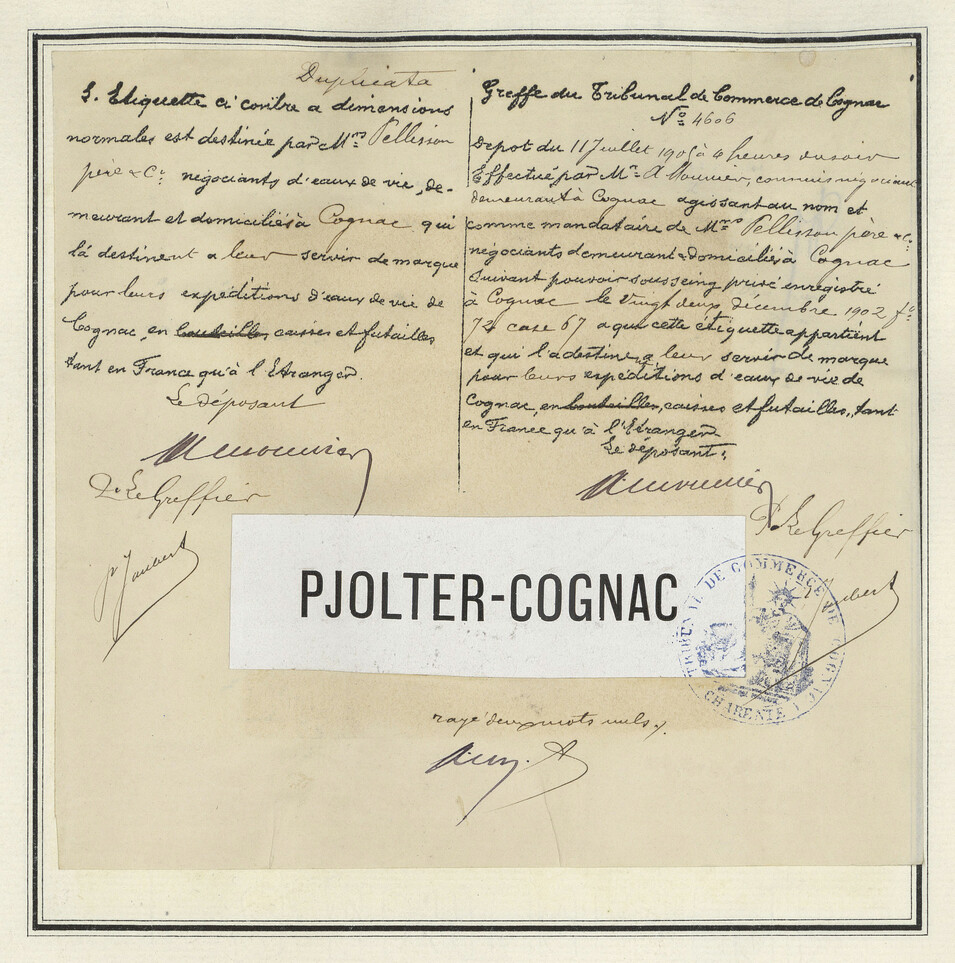 Duplicata
L. Etiquette ci contre a dimensions
normales est destinée par Mrs Pellisson
père & Ce négociants d'eaux de vie, de-
meurant et domiciliés à Cognac qui
la destinent a leur servir de marque
pour leurs expéditions d'eaux de vie de
Cognac, en bouteilles, caisses et futailles
tant en France qu'à l'Etranger.
Le déposant
Amounier
Pr Le Greffier
Pr Joubert
Greffe du Tribunal de Commerce de Cognac
No 4606
Depot du 11 Juillet 1905 à 4 heures du soir
Effectué par Mr A Mounier, commis négociant
demeurant à Cognac agissant au nom et
comme mandataire de Mrs Pellisson père & Ce
négociants demeurant & domiciliés à Cognac
suivant pouvoir sous seing privé enregistré
à Cognac le vingt deux décembre 1902 fo
72 case 67 a qui cette étiquette appartient
et qui l'a destine a leur servir de marque
pour leurs expéditions d'eaux de vie de
Cognac, en bouteilles, caisses et futailles, tant
en France qu'à l'Etranger
Le déposant:
Amounier
Pr Le Greffier
Joubert
PJOLTER-COGNAC
TRIBUNAL DE COMMERCE DE COGNAC
CHARENTE
rayé deux mots nuls